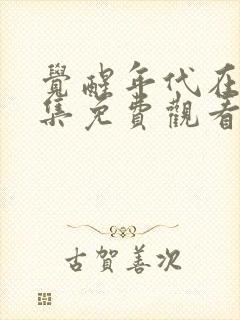 覺醒年代在
集免費觀看
古賀善次